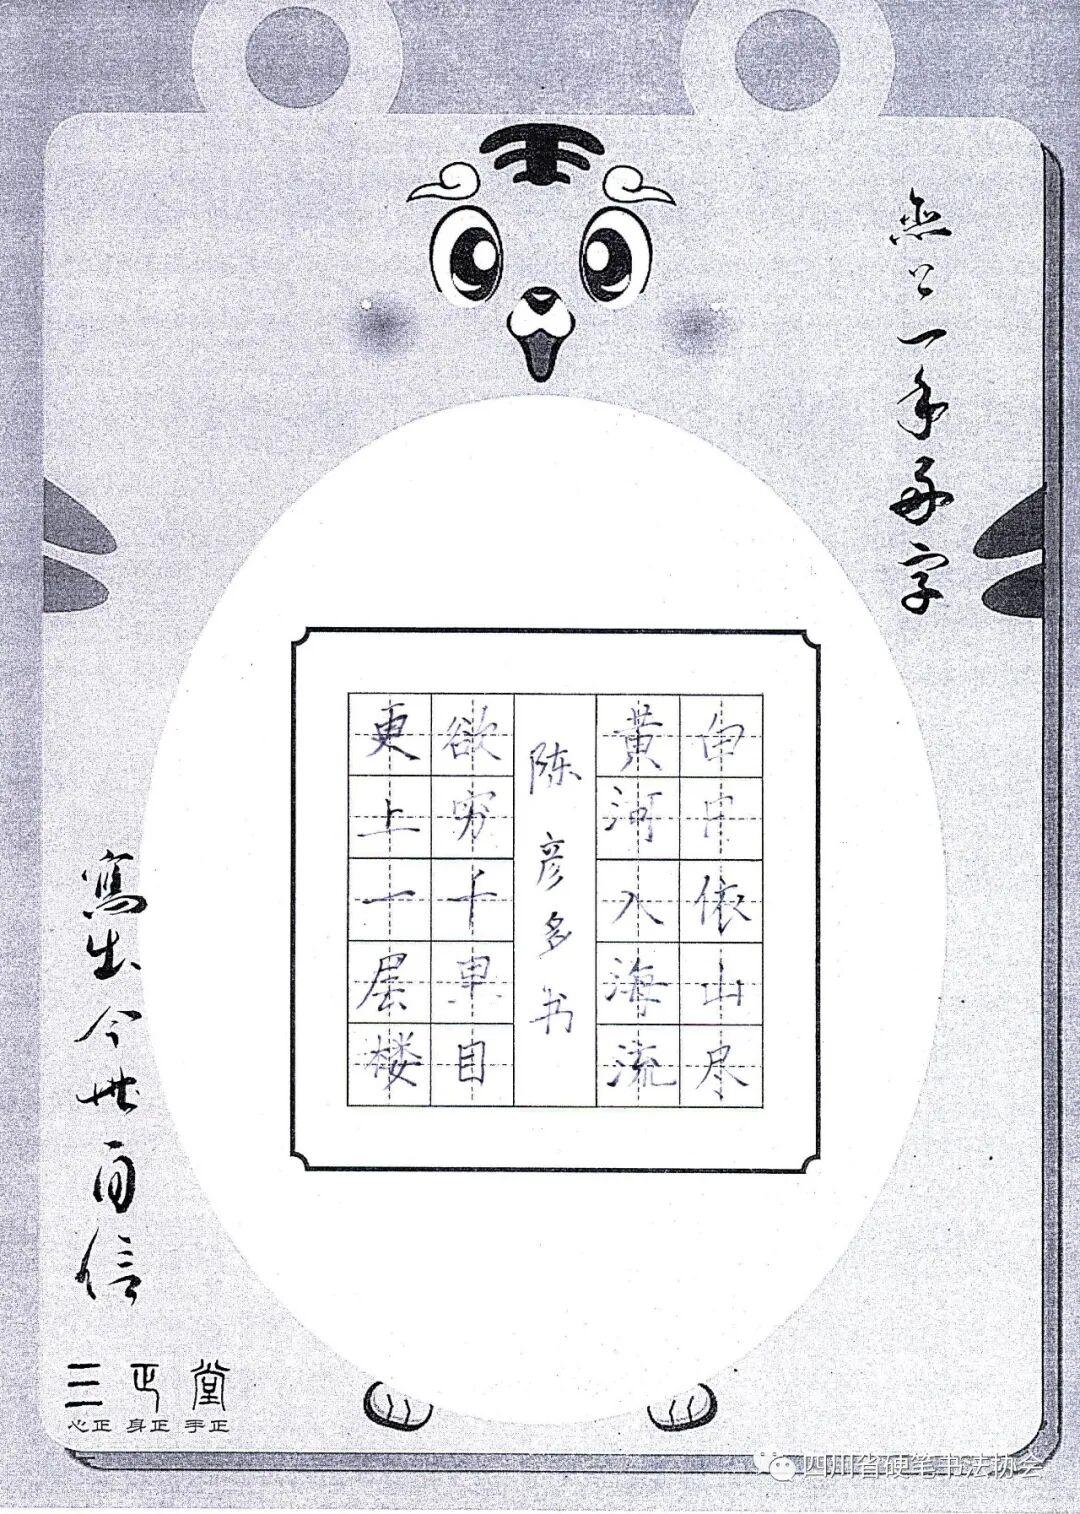 一手好字
白日依山尽
黄河入海流
陈彦多书
欲穷千里目
更上一层楼
寫出今世自信
三正堂
心正 身正 手正
四川省硬笔书法协会